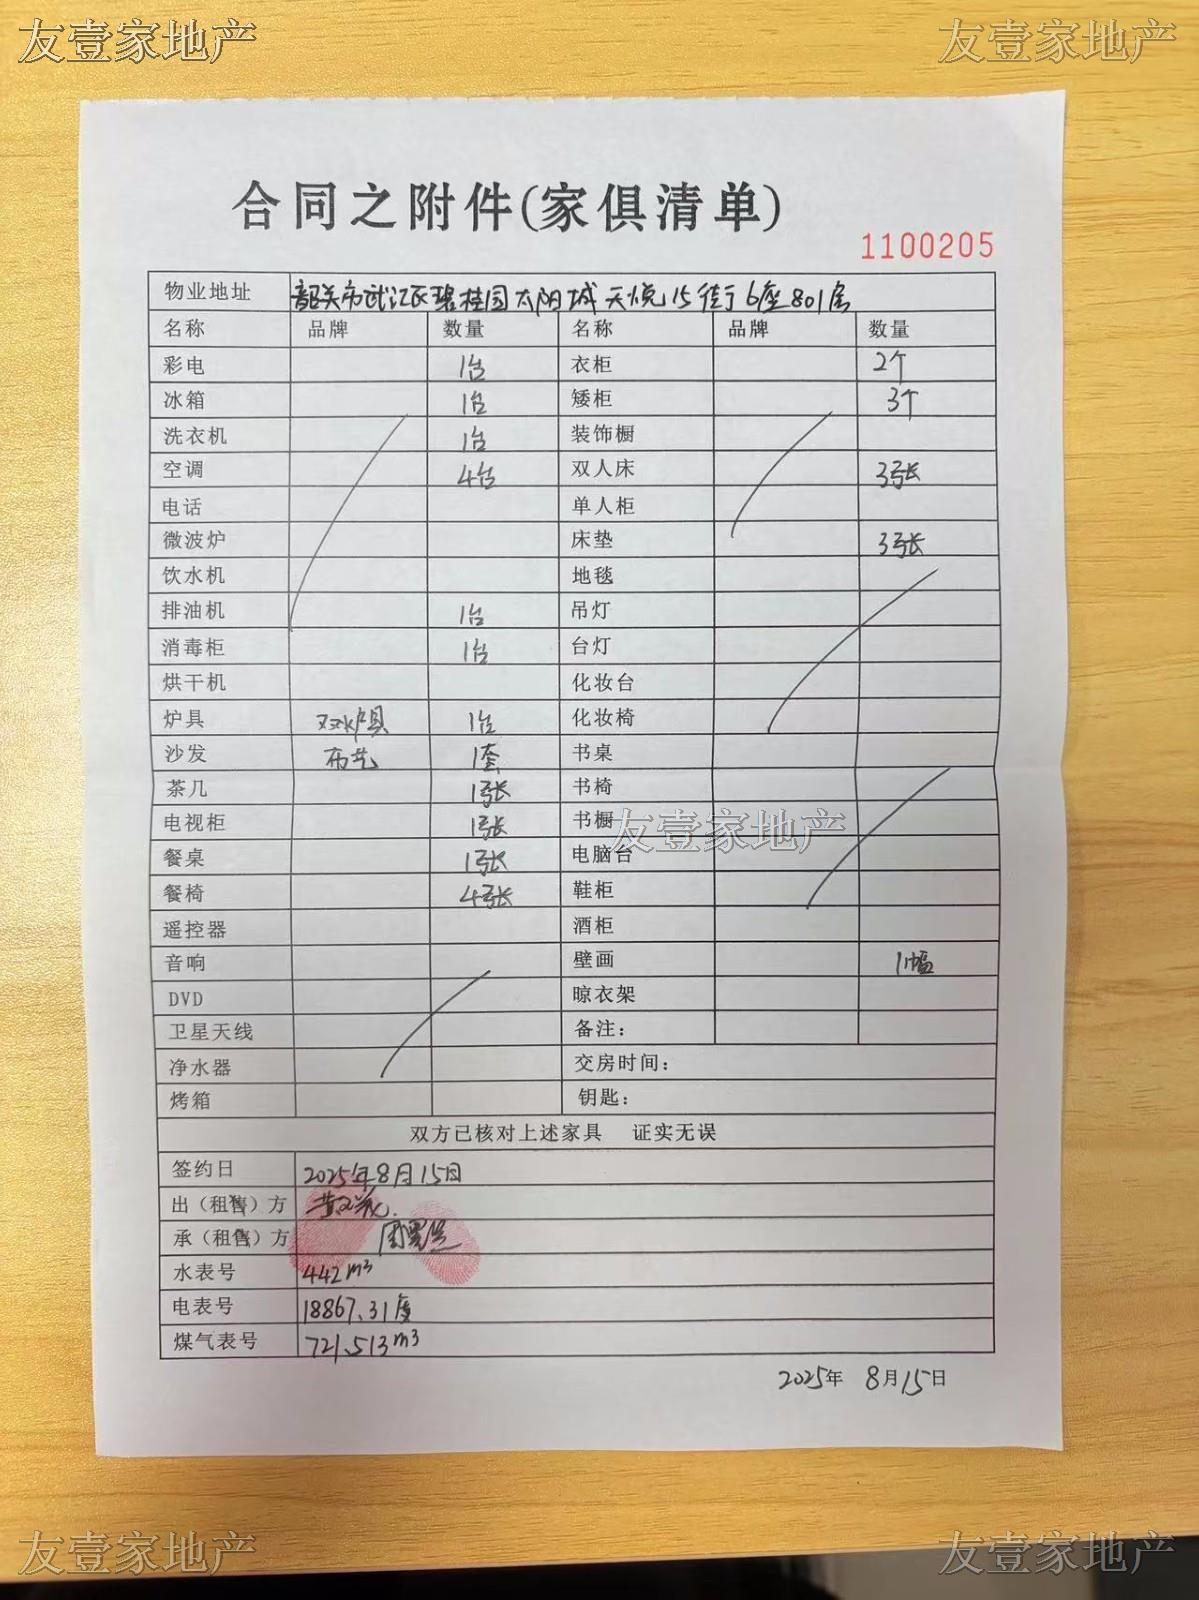 友壹家地产 友壹家地产
合同之附件(家俱清单)
1100205
物业地址 韶关市武江区碧桂园太阳城天悦15街6座801房
名称 品牌 数量 名称 品牌 数量
彩电 1台 衣柜 2个
冰箱 1台 矮柜 3个
洗衣机 1台 装饰橱
空调 4台 双人床 3张
电话 单人柜
微波炉 床垫 3张
饮水机 地毯
排油机 1台 吊灯
消毒柜 1台 台灯
烘干机 化妆台
炉具 双炉具 1台 化妆椅
沙发 布艺 1套 书桌
茶几 1张 书椅
电视柜 1张 书橱
友壹家地产
餐桌 1张 电脑台
餐椅 4张 鞋柜
遥控器 酒柜
音响 壁画 1幅
DVD 晾衣架
卫星天线 备注：
净水器 交房时间：
烤箱 钥匙：
双方已核对上述家具 证实无误
签约日 2025年8月15日
出（租售）方
承（租售）方
水表号 442m³
电表号 18867.31度
煤气表号 721.513m³
2025年 8月15日
友壹家地产 友壹家地产